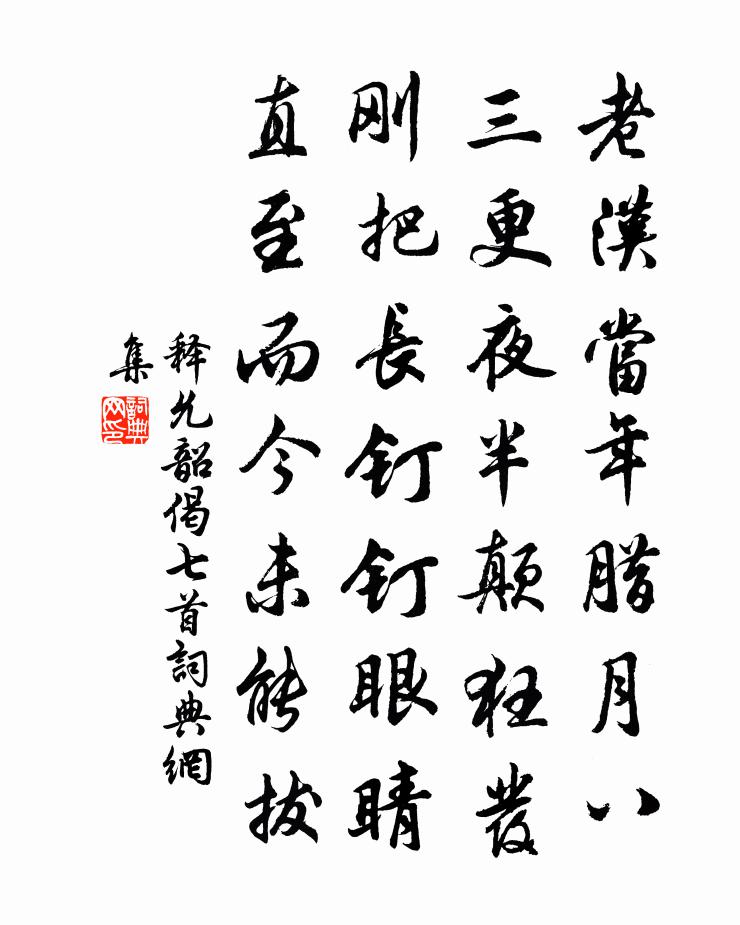 老漢當年腊月八
三更夜半顛狂發
刚把長钉钉眼睛
直至而今未能拔
释允韶偈七首詞典網
集
詞典网印